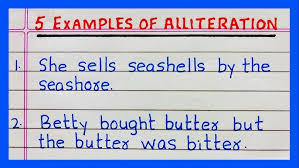 5 EXAMPLES OF ALLITERATION
1. She sells seashells by the
seashore.
2. Betty bought butter but
the butter was bitter.